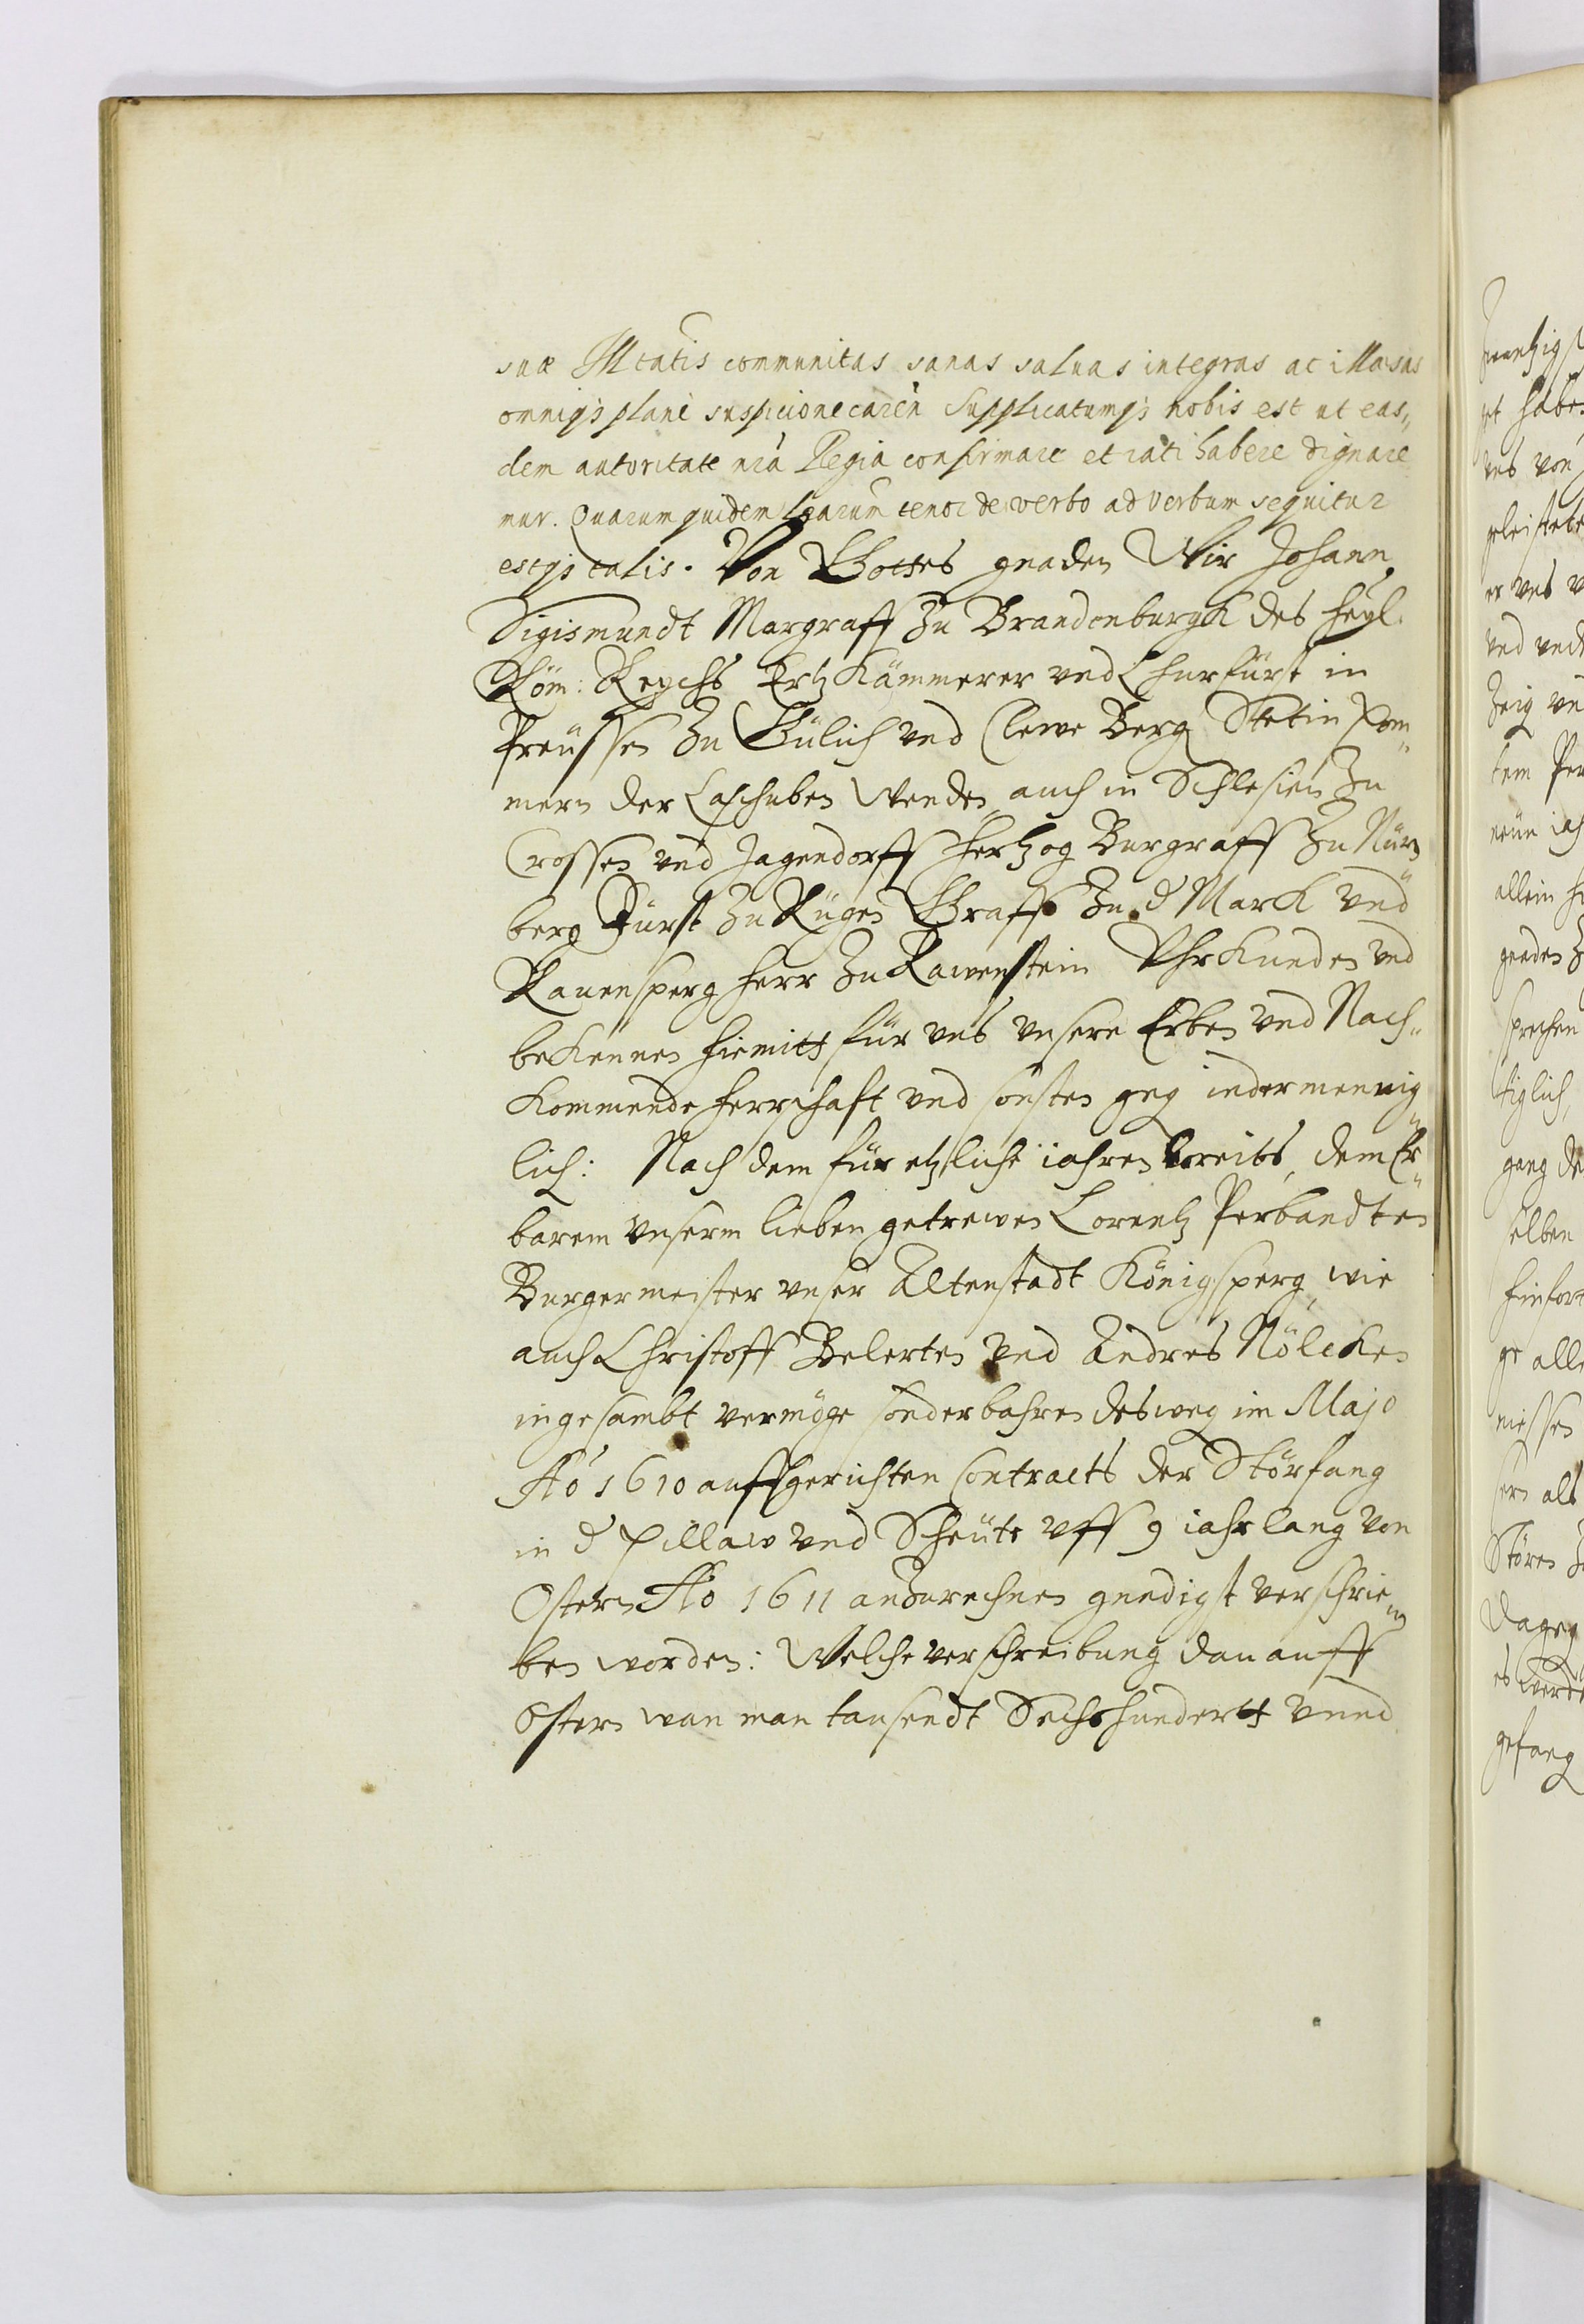 suæ Mtatis communitas sanas saluas integras ac illæsas
omniq3 plane suspicione careñ Supplicatumq3 nobis est ut eas„
dem autoritate nrã Regia confirmare et rati habere dignare
mur. Quarum quidem Lrarum tenor de verbo ad verbum sequitur
estq3 talis. Von Gottes gnaden Wir Johann
Sigismundt Margraff zu Brandenburgk des heyl.
Röm: Reychs Ertz Kämmerer vnd Churfürst in
Preussen zu Gülich vnd Clewe Berg Stetin Pom„
mern der Caschuben Wenden auch in Schlesien zu
Crossen vnd Jagendorff Hertzog Burgraff zu Nürn
berg Fürst zu Rügen Graff zu d Marck vnd
Rauensperg Herr zu Rawenstein Vhrkunden vnd
bekennen hiemitt für vns vnsere Erben vnd Nach„
kommende herrschaft vnd sonsten geg indermennig
lich: Nach dem für etzliche iahren bereits, dem Er„
barem vnserm lieben getrewen Lorentz Perbandten
Burgermeister vnser Altenstadt Königsperg, wie
auch Christoff Belerten vnd Andres Nölcken
ingesambt vermöge sonderbahren desweg im Majo
Aõ 1610 auffgerichten Contracts der Störfang
in d Pillaw vnd Scheute vff 9 iahr lang von
Ostern Aõ 1611 anzurechnen gnedigst verschrie„
ben worden: Welche verschreibung dan auff
Ostern wan man tausendt Sechshundertt vnnd